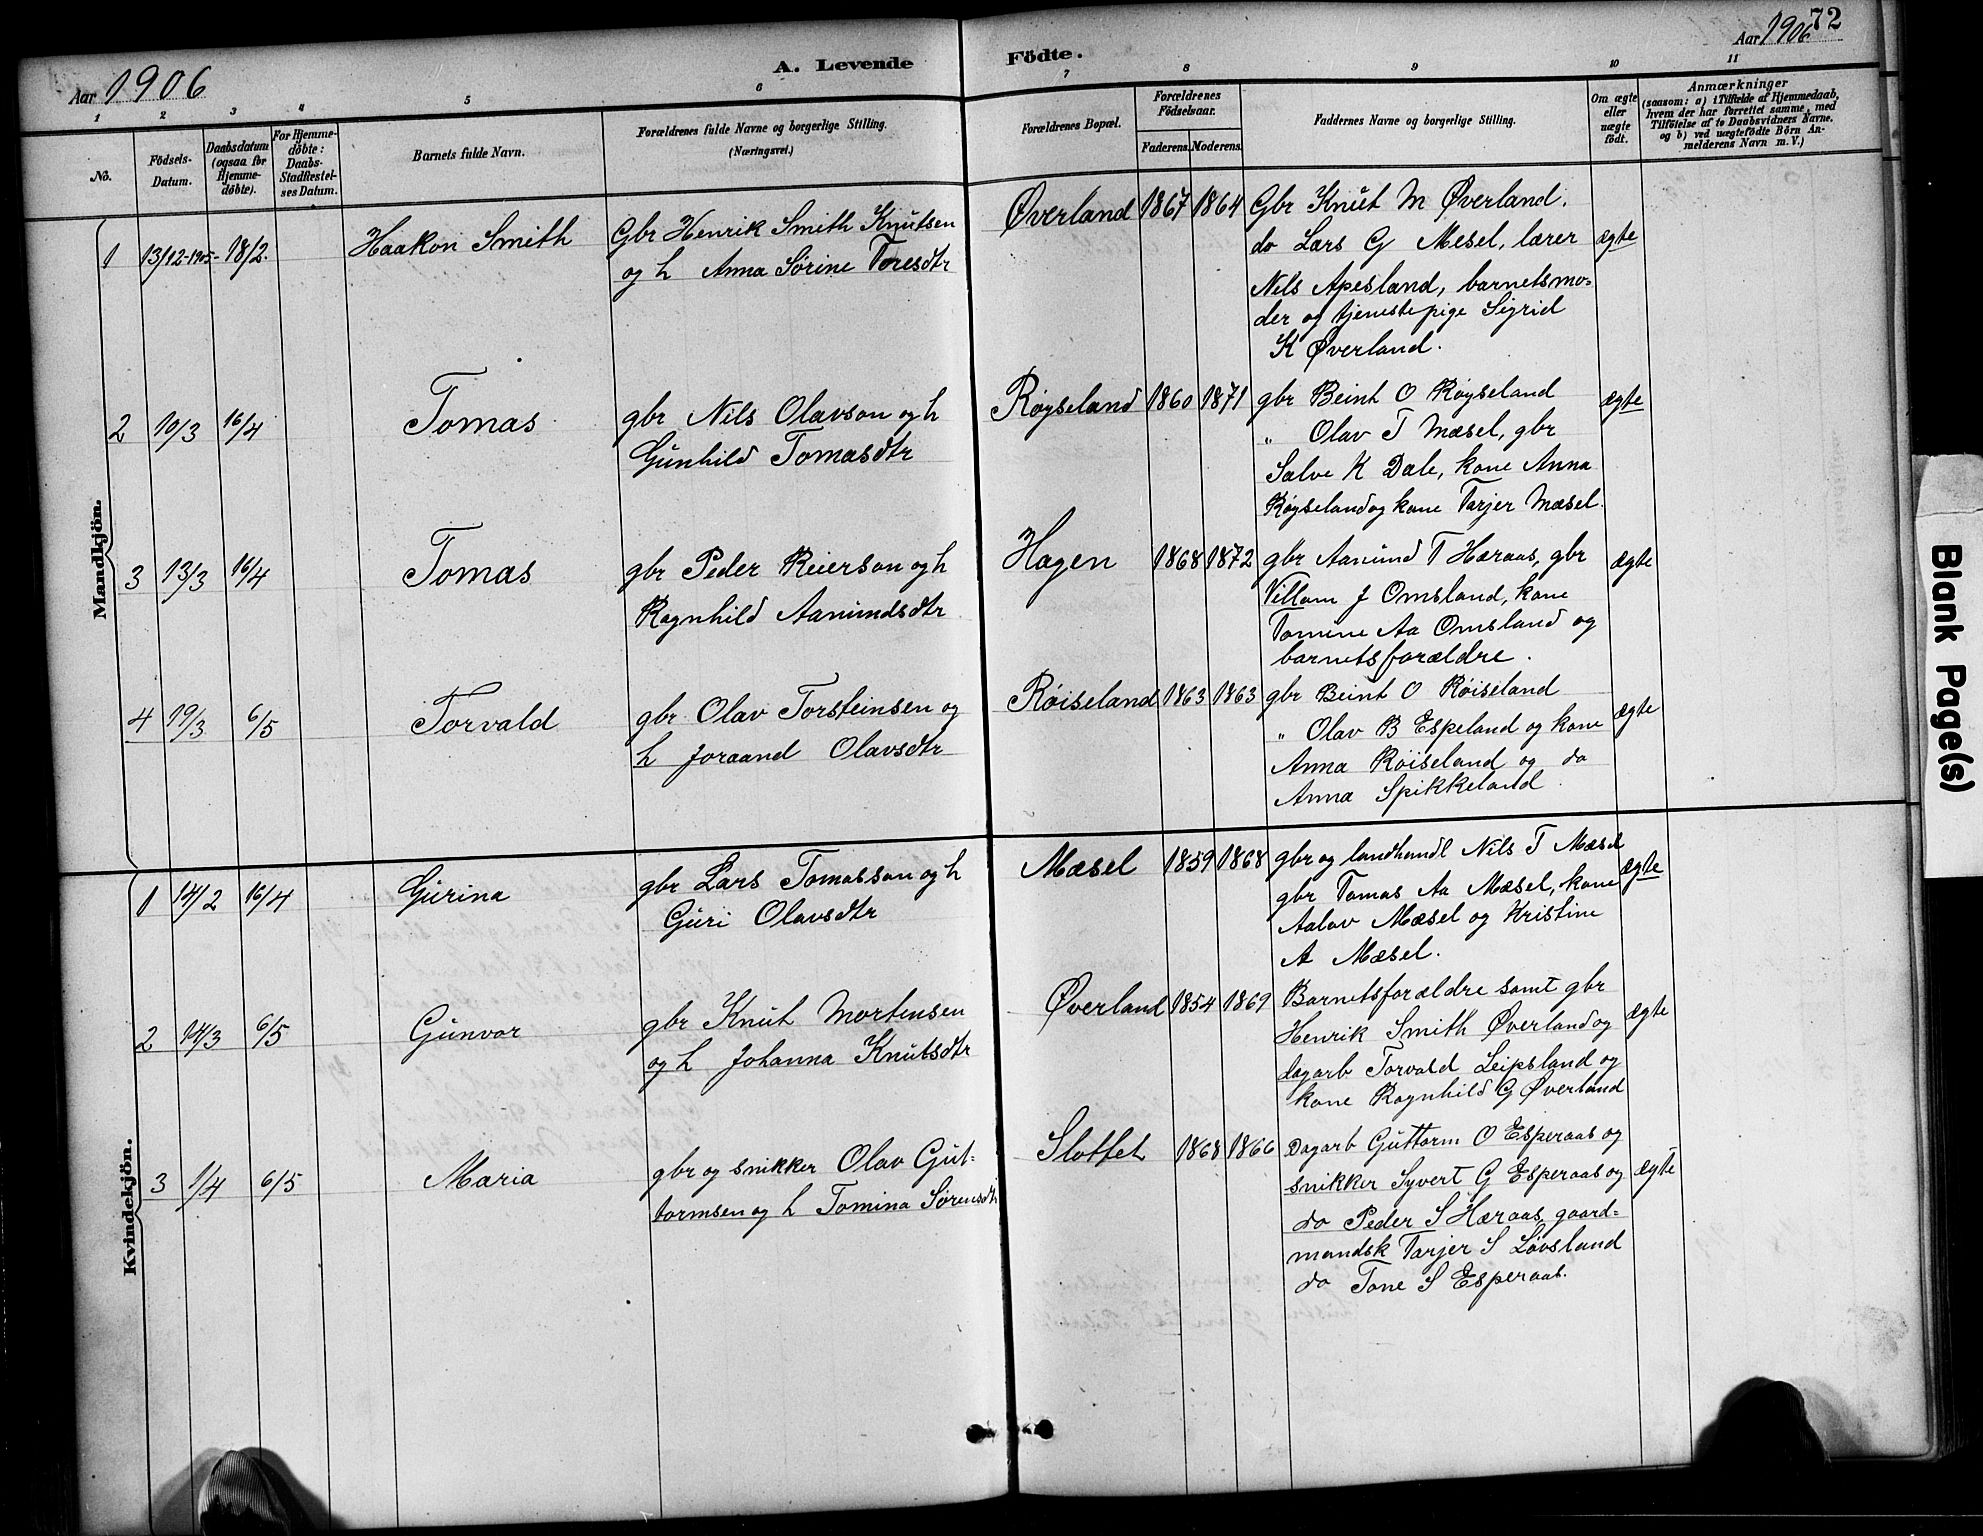 72
Aar 1906
A. Levende Födte.
Aar 1906
1 2 3 4 5 6 7 8 9 10 11
No.
Födsels-Datum.
Daabsdatum (ogsaa for Hjemmedøbte).
For Hjemmedøbte: Daabs-Stadfæstelses Datum.
Barnets fulde Navn.
Forældrenes fulde Navne og borgerlige Stilling.
(Næringsvei.)
Forældrenes Bopæl.
Forældrenes Födselsaar.
Faderens. Moderens.
Faddernes Navne og borgerlige Stilling.
Om ægte eller uægte født.
Anmærkninger
(saasom: a) i Tilfælde af Hjemmedaab,
hvem der har forrettet samme, med
Tilføielse af to Daabsvidners Navne,
og b) ved uægtefødte Børn Anmelderens Navn m. V.)
Mandkjön.
1 13/12-1905- 18/2. Haakon Smith Gbr Henrik Smith Knutsen Øverland 1867 1864 Gbr Knut M Øverland.
og h Anna Sørine Toresdtr do Lars G Mesel, lærer ægte
Nils Apesland, barnetsmo-
der og tjenestepige Sigrid
K Øverland.
2 10/3 16/4 Tomas gbr Nils Olavson og h Røyseland 1860 1871 gbr Beint O Røyseland ægte
Gunhild Tomasdtr " Olav T Mæsel, gbr
Salve K Dale, kone Anna
Røyseland og kone Tarjer Mæsel.
3 13/3 16/4 Tomas gbr Peder Reierson og h Hagen 1868 1872 gbr Aanund T Høraas, gbr ægte
Ragnhild Aanundsdtr Villam J Omsland, kone
Tomine Aa Omsland og
barnetsforældre.
4 19/3 6/5 Torvald gbr Olav Torsteinsen og Røiseland 1863 1863 gbr Beint O Røiseland ægte
h Joraand Olavsdtr " Olav B Espeland og kone
Anna Røiseland og do
Anna Spikkeland.
Kvindekjön.
1 14/2 16/4 Gurina gbr Lars Tomasson og h Mæsel 1859 1868 gbr og landhandl Nils T Mæsel ægte
Guri Olavsdtr gbr Tomas Aa Mæsel, kone
Aalav Mæsel og Kristine
A Mæsel.
2 14/3 6/5 Gunvor gbr Knut Mortensen Øverland 1854 1869 Barnetsforældre samt gbr ægte
og h Johanna Knutsdtr Henrik Smith Øverland og
dagarb Torvald Leipsland og
kone Ragnhild G Øverland
3 1/4 6/5 Maria gbr og snikker Olav Gut- Slottet 1868 1866 Dagarb Guttorm O Esperaas og
tormsen og h Tomina Sørensdtr snikker Syvert G Esperaas og ægte
do Peder S Høraas, gaard-
mandsk Tarjer S Løvsland
do Tone S Esperaas.
Blank Page(s)